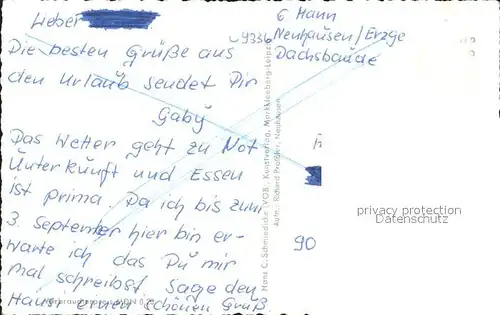 Lieber
Die besten Grüße aus
den Urlaub sendet Dir
Gaby
Das Wetter geht zu Not
Unterkunft und Essen
ist prima. Da ich bis zum
3. September hier bin er-
warte ich das Du mir
mal schreibst. Sage den
Hausi einen schönen Gruß
G Hann
9336 Neuhausen/Erzge
Dachsbaude
Hans C. Schmiedicke (VOB), Kunstverlag, Markkleeberg-Leipzig
Aufn.: Richard Neuhausen
privacy protection
Datenschutz
90